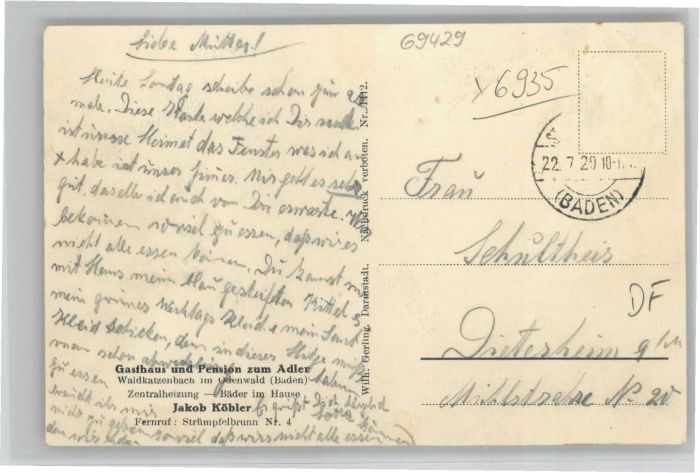 Liebe Mutter!
Heute Sontag schreibe schon zum
male. Diese Karte welche ich Dir sende
ist unsere Heimat das Fenster was ich an
x habe ist unser Zimer. Mir geht es sehr
gut, dasselbe ich auch von Dir erwarte. Wir
bekommen soviel zu essen, daß wir es
nicht alle essen können. Du kanst mir
mit Hans mein blau gestreiften Kittel &
mein grünes Werktags Kleid & mein Samt
Kleid schicken, denn in dieser Hitze muß
man schon abwechslung haben.
zu essen
braucht ihr mir
nicht zu geben soviel daß wir es nicht alle essen
Es grüßt Dich herzlich
können
Gasthaus und Pension zum Adler
Waldkatzenbach im Odenwald (Baden)
Zentralheizung — Bäder im Hause
Jakob Köbler
Fernruf: Strümpfelbrunn Nr. 4
Wilh. Gerling, Darmstadt. Nachdruck verboten. Nr. 1412.
69429
x6935
22.7.29.10-1
(BADEN)
Frau
Schultheis
DF
Dietersheim
Mühlstraße No 20